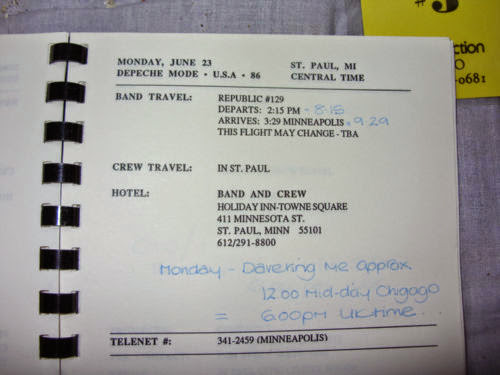 #3
ction
O
-0681
MONDAY, JUNE 23 ST. PAUL, MI
DEPECHE MODE · U.S.A · 86 CENTRAL TIME
BAND TRAVEL: REPUBLIC #129
DEPARTS: 2:15 PM - 8-15
ARRIVES: 3:29 MINNEAPOLIS - 9.29
THIS FLIGHT MAY CHANGE - TBA
CREW TRAVEL: IN ST. PAUL
HOTEL: BAND AND CREW
HOLIDAY INN-TOWNE SQUARE
411 MINNESOTA ST.
ST. PAUL, MINN 55101
612/291-8800
Monday - Davering me approx
12.00 Mid-day Chigogo
= 6.00pm UK time.
TELENET #: 341-2459 (MINNEAPOLIS)